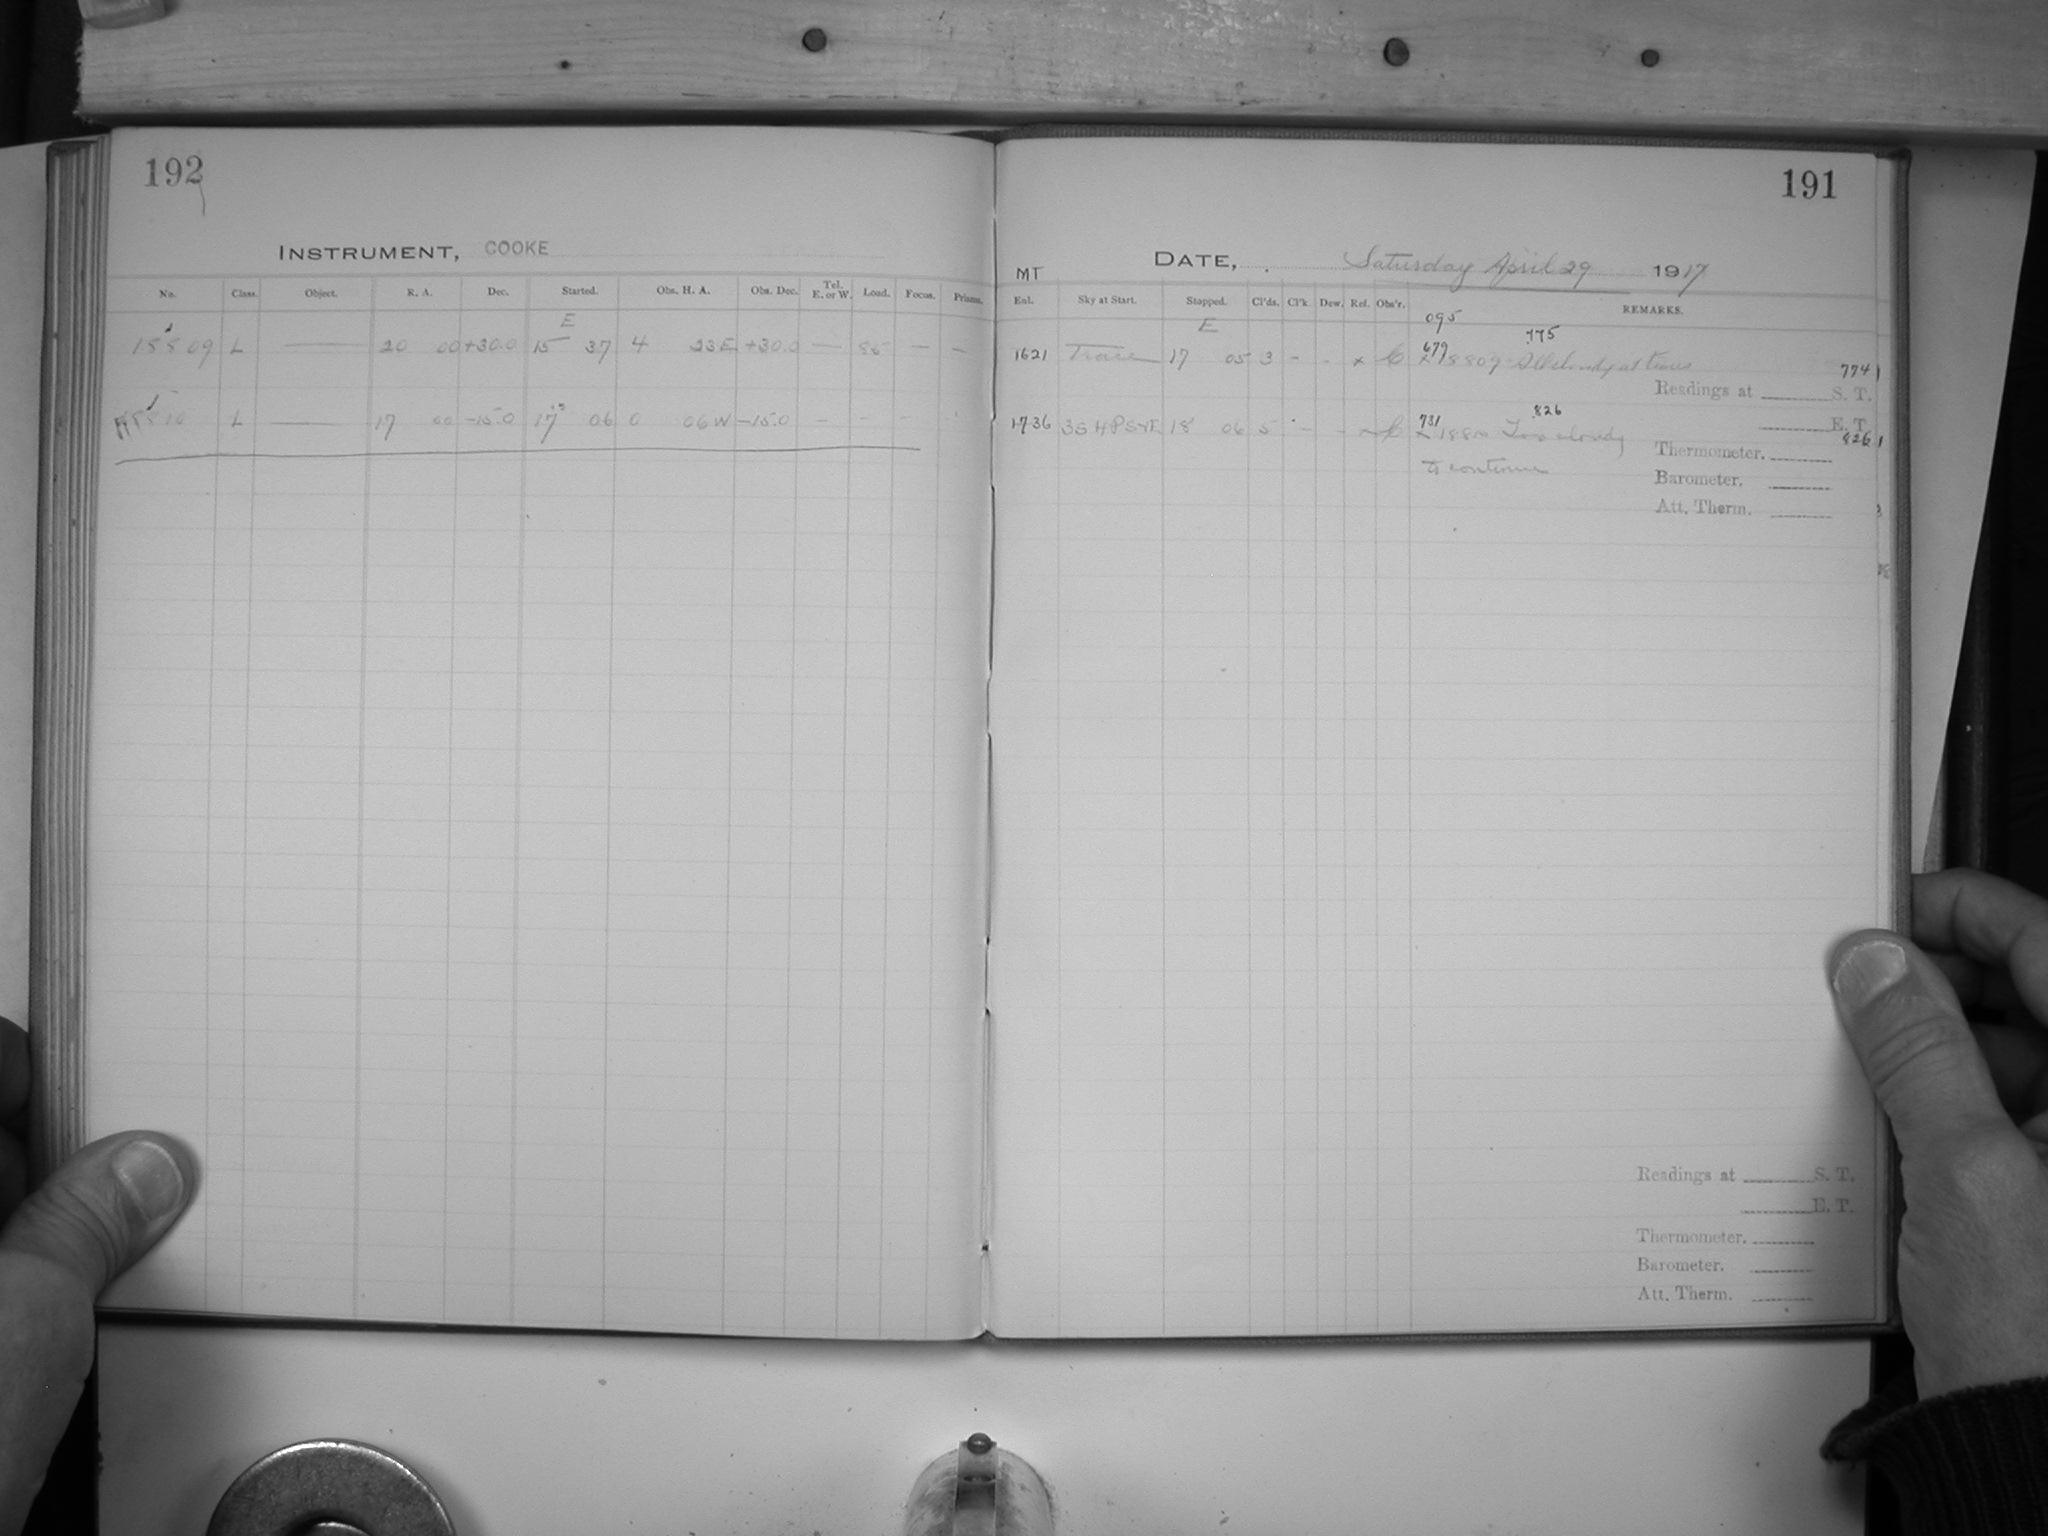 192
INSTRUMENT, COOKE
No. Class. Object. R. A. Dec. Started. Obs. H. A. Obs. Dec. Tel. E. or W. Load. Focus. Prisms.
E
18809 L — 20 00 +30.0 15 37 4 23E +30.0 — 85 — —
L — 17 00 -15.0 17 06 0 06W -15.0 - - -
191
DATE, Saturday April 29 1917
MT
Enl. Sky at Start. Stopped. Cl'ds. Cl'k. Dew. Ref. Obs'r. REMARKS.
E 095
775
1621 Trace 17 05 3 - - x C 679 18809 at times
774
Readings at S. T.
E. T.
826
1736 18 06 5 - - C 731 Too cloudy
826
to continue
Thermometer.
Barometer.
Att. Therm.
Readings at S. T.
E. T.
Thermometer.
Barometer.
Att. Therm.